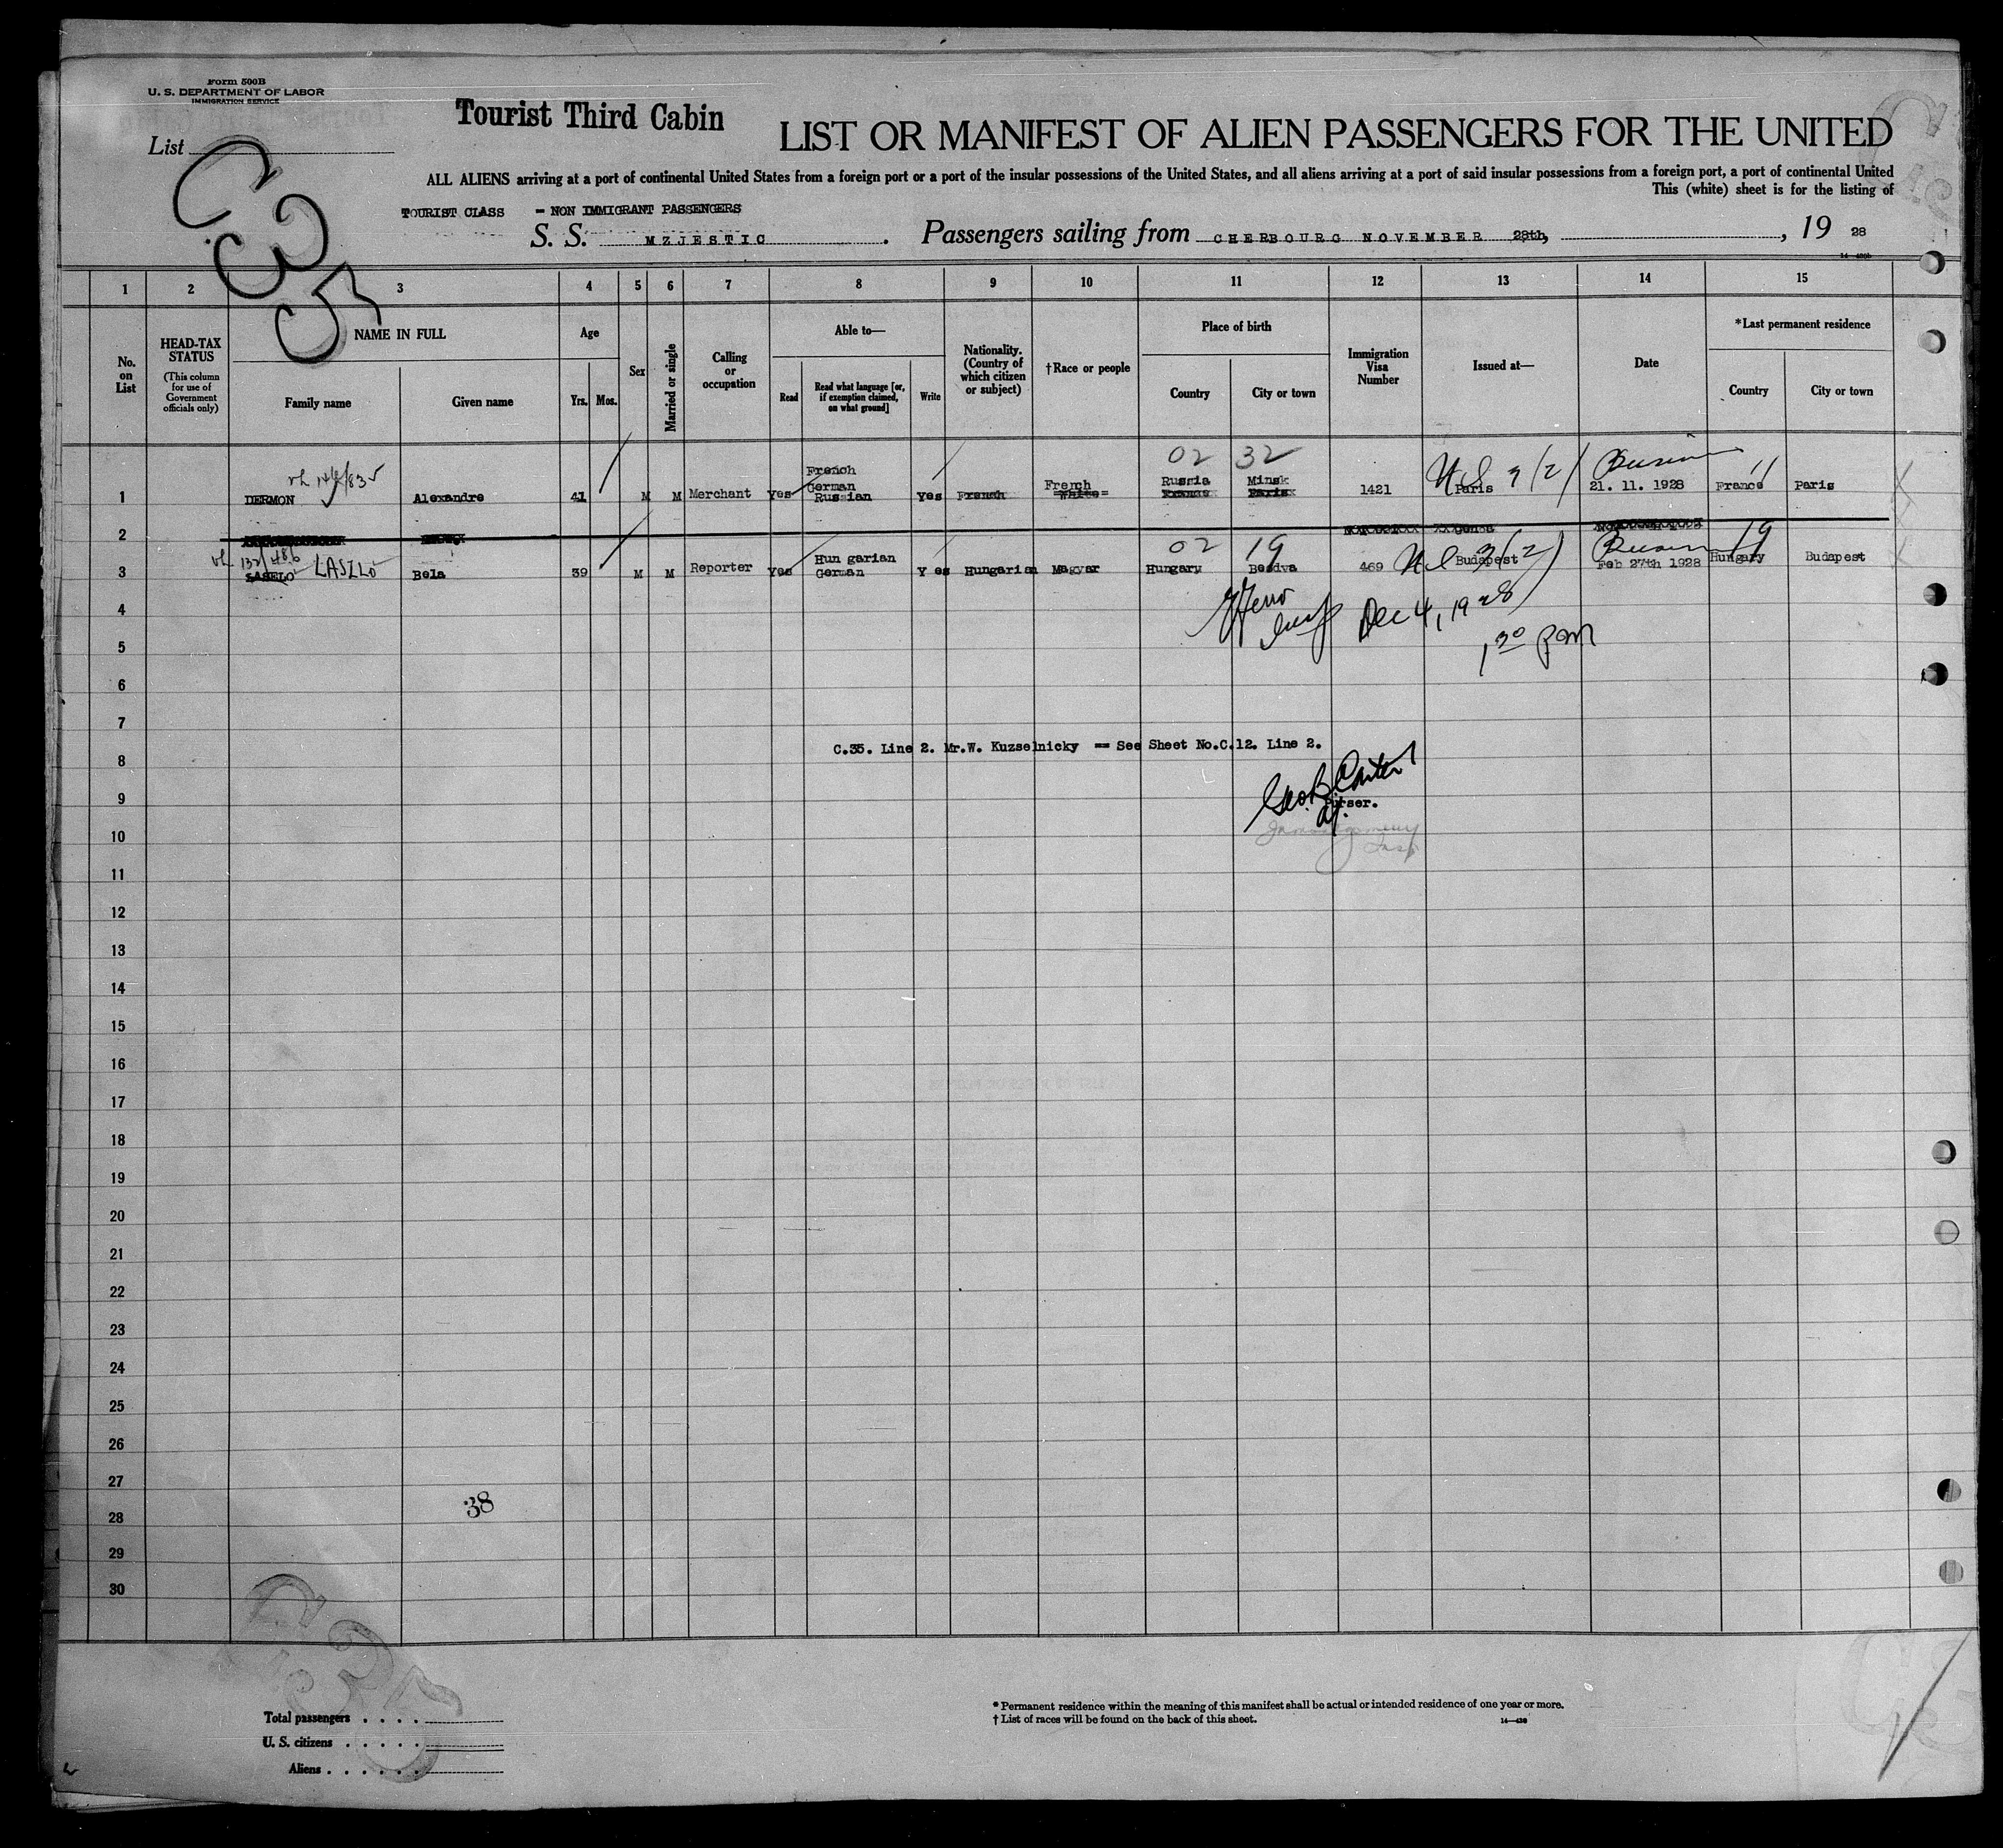 Form 500B
U. S. DEPARTMENT OF LABOR
IMMIGRATION SERVICE
List
C.35
Tourist Third Cabin
LIST OR MANIFEST OF ALIEN PASSENGERS FOR THE UNITED
ALL ALIENS arriving at a port of continental United States from a foreign port or a port of the insular possessions of the United States, and all aliens arriving at a port of said insular possessions from a foreign port, a port of continental United
This (white) sheet is for the listing of
TOURIST CLASS - NON IMMIGRANT PASSENGERS
S. S. MZJESTIC. Passengers sailing from CHERBOURG NOVEMBER 28th, , 19 28
1 2 3 4 5 6 7 8 9 10 11 12 13 14 15
No. on List
HEAD-TAX STATUS
(This column for use of Government officials only)
NAME IN FULL
Family name
Given name
Age
Yrs. Mos.
Sex
Married or single
Calling or occupation
Able to—
Read
Read what language [or, if exemption claimed, on what ground]
Write
Nationality. (Country of which citizen or subject)
†Race or people
Place of birth
Country
City or town
Immigration Visa Number
Issued at—
Date
*Last permanent residence
Country
City or town
02 32
1 DERMON Alexandre 41 M M Merchant Yes French German Russian Yes French French White Russia France Minsk Paris 1421 Paris 21. 11. 1928 France Paris
2
02 19
3 LASZLO LASZLO Bela 39 M M Reporter Yes Hun garian German Y es Hungarian Magyar Hungary 469 Budapest Feb 27th 1928 Hungary Budapest
4
Dec 4, 1928
5
1 30 P.M
6
7
C.35. Line 2. Mr.W. Kuzselnicky == See Sheet No.C.12. Line 2.
8
Geo. B. Carter
9
Purser.
10
11
12
13
14
15
16
17
18
19
20
21
22
23
24
25
26
27
38
28
29
30
Total passengers . . . .
U. S. citizens . . . . .
Aliens . . . . . .
* Permanent residence within the meaning of this manifest shall be actual or intended residence of one year or more.
† List of races will be found on the back of this sheet.
14—430